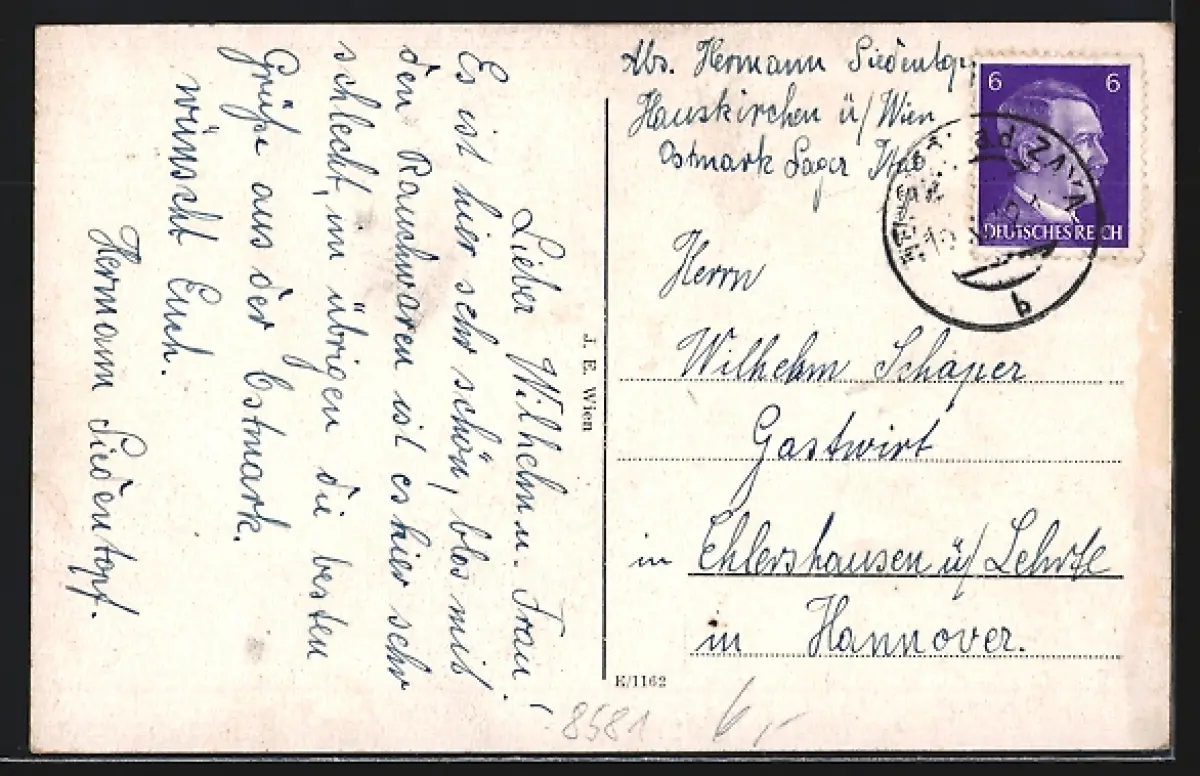 Lieber Wilhelm u. Frau!
Es ist hier sehr schön, blos mit
den Rauchwaren ist es hier sehr
schlecht, im übrigen die besten
Grüße aus der Ostmark.
wünscht Euch.
Hermann Siedentopf.
J. E. Wien
K/1162
8581
6,-
Abs. Hermann Siedentopf
Hauskirchen ü/Wien
Ostmark Lager
6 6
DEUTSCHES REICH
a.d. ZAYA
b
Herrn
Wilhelm Schaper
Gastwirt
in Ehlershausen ü/Lehrte
in Hannover.